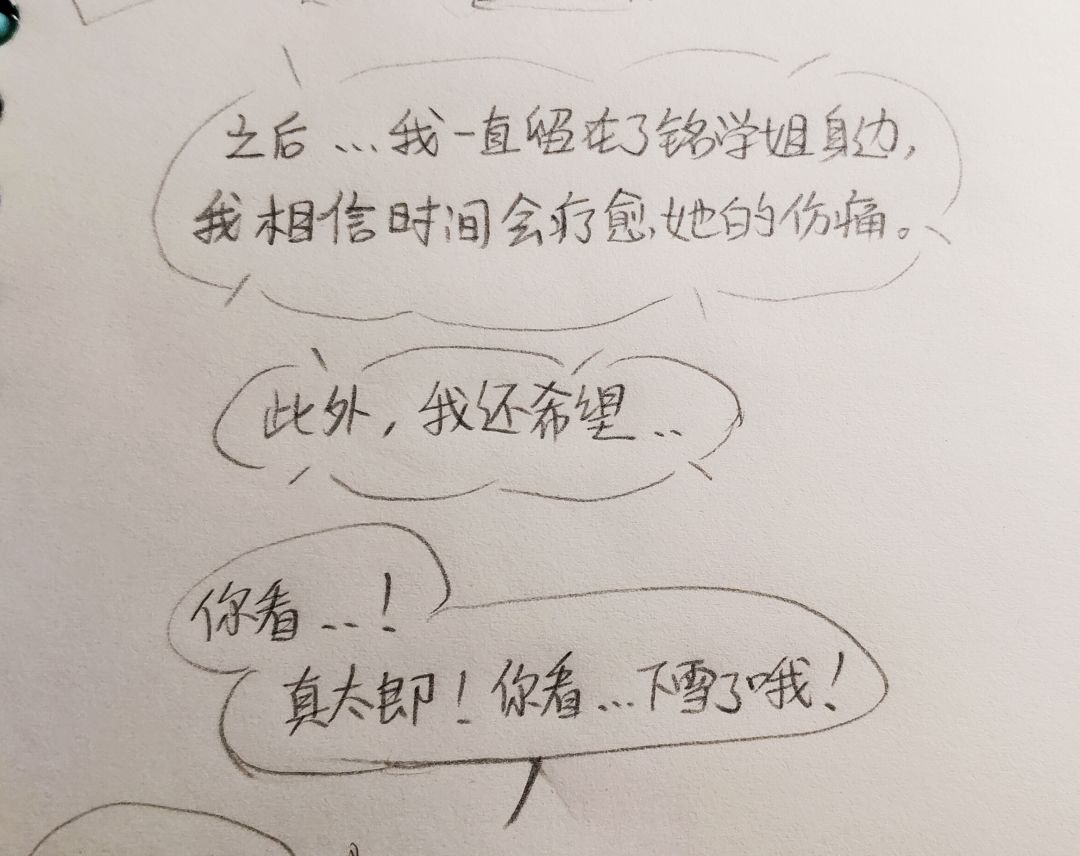 之后...我一直留在了铭学姐身边,
我相信时间会疗愈她的伤痛。
此外,我还希望...
你看...!
真太郎!你看...下雪了哦!